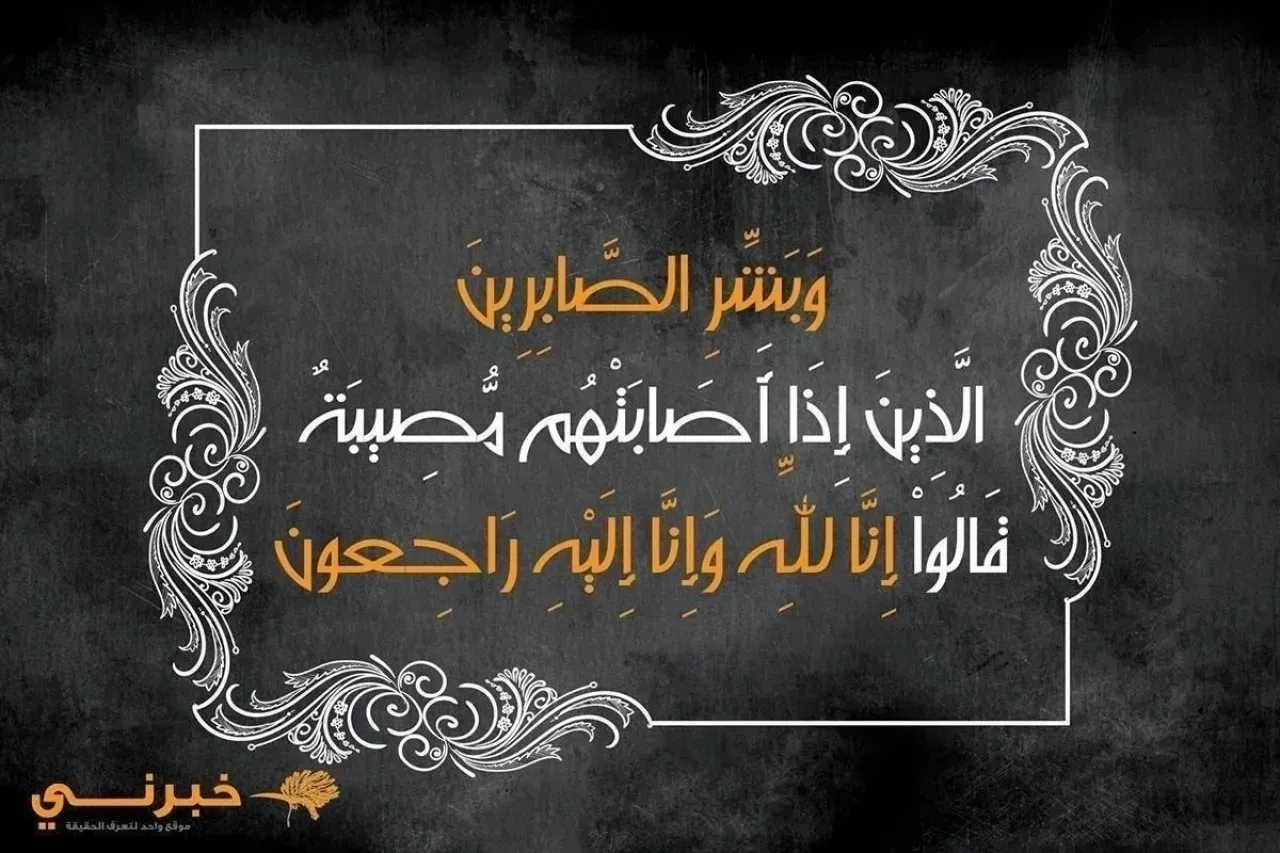 وَبَشِّرِ الصَّابِرِينَ
الَّذِينَ إِذَا أَصَابَتْهُم مُّصِيبَةٌ
قَالُوا إِنَّا لِلَّهِ وَإِنَّا إِلَيْهِ رَاجِعونَ
خبرني
موقع واحد لتعرف الحقيقة